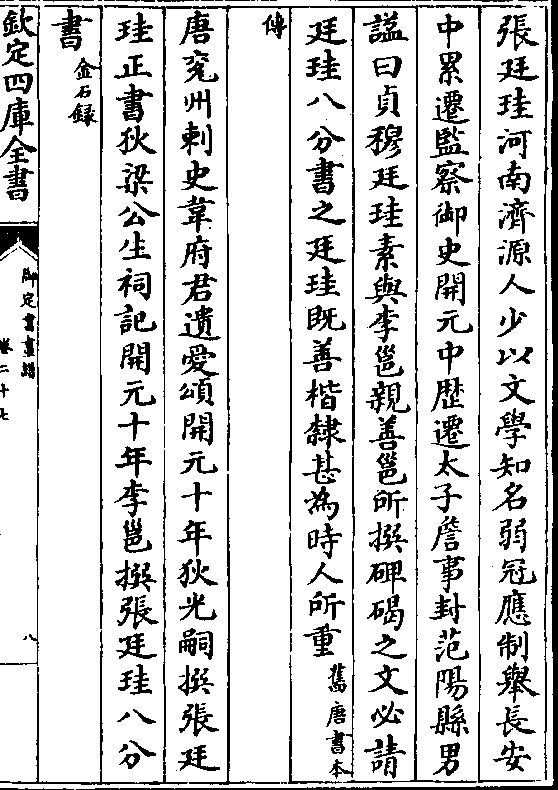 張廷珪河南濟源人少以文學知名弱冠應制舉長安
中累遷監察御史開元中歴遷太子詹事封范陽縣男
謚曰貞穆廷珪素與李邕親善邕所撰碑碣之文必請
廷珪八分書之廷珪既善楷隸甚為時人所重舊唐書本
傳
唐兖州刺史韋府君遺愛頌開元十年狄光嗣撰張廷
珪正書狄梁公生祠記開元十年李邕撰張廷珪八分
書金石録
欽定四庫全書
御定書畫譜
卷二十七
八